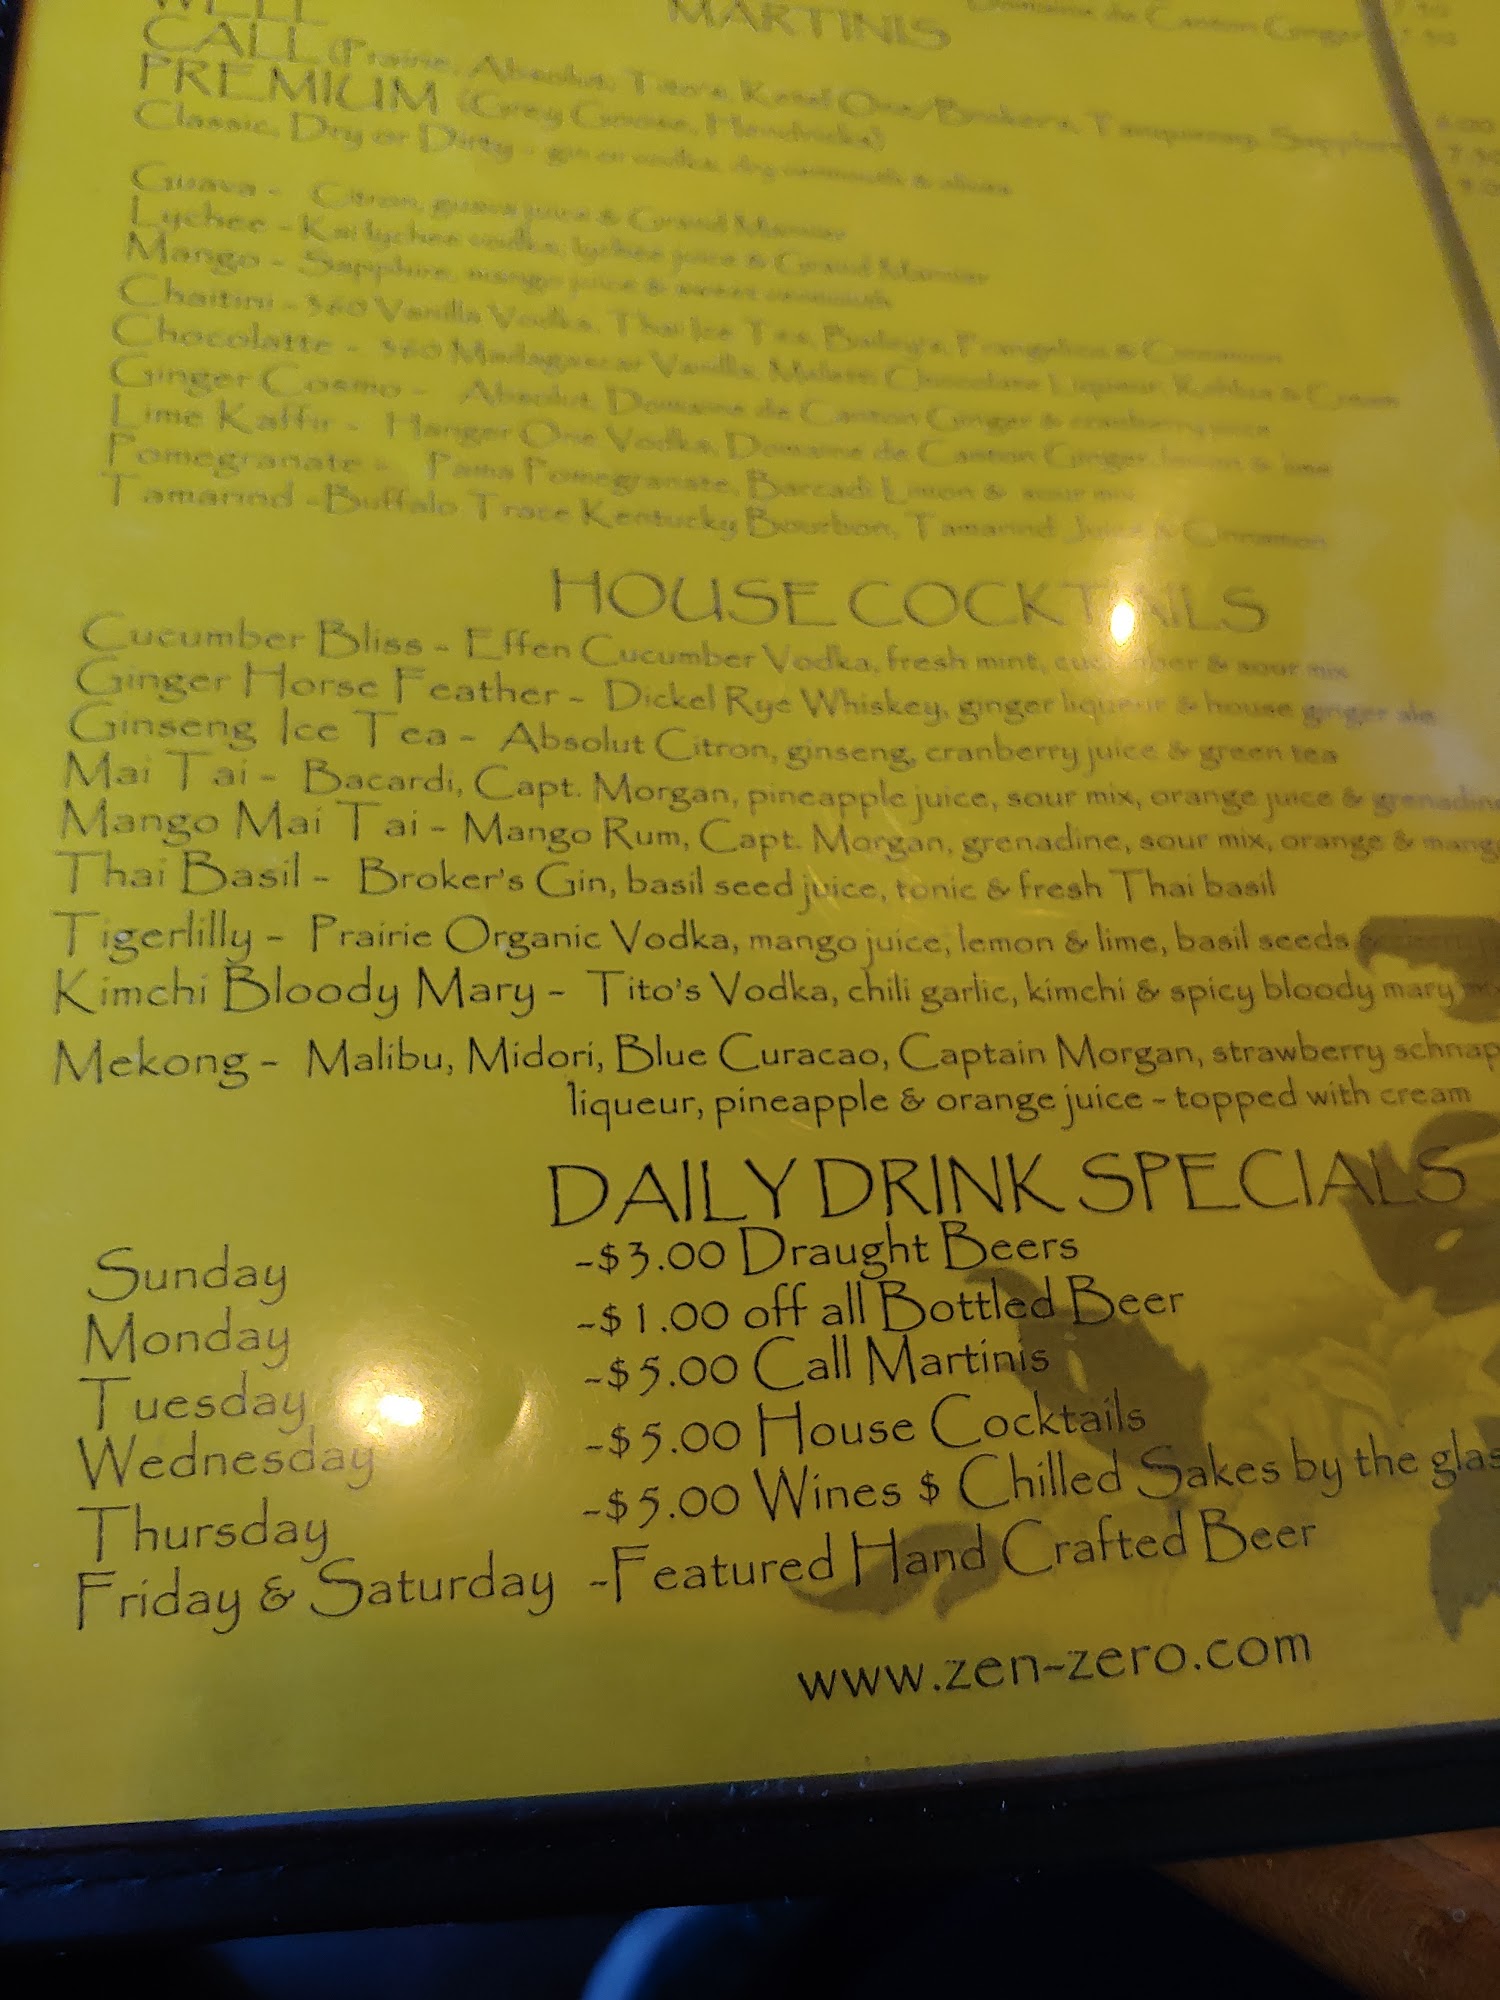 WELL
MARTINIS
Domaine de Canton Ginger
CALL (Prairie, Absolut, Tito's, Ketel One/Broker's, Tanqueray, Sapphire)
PREMIUM (Grey Goose, Hendricks)
Classic, Dry or Dirty - gin or vodka, dry vermouth & olives
Guava - Citron, guava juice & Grand Marnier
Lychee - Kai lychee vodka, lychee juice & Grand Marnier
Mango - Sapphire, mango juice & sweet vermouth
Chaitini - 360 Vanilla Vodka, Thai Ice Tea, Bailey's, Frangelico & Cinnamon
Chocolatte - 360 Madagascar Vanilla, Chocolate Liqueur, Kahlua & Cream
Ginger Cosmo - Absolut, Domaine de Canton Ginger & cranberry juice
Lime Kaffir - Hanger One Vodka, Domaine de Canton Ginger, lemon & lime
Pomegranate - Pama Pomegranate, Barcadi Limon & sour mix
Tamarind - Buffalo Trace Kentucky Bourbon, Tamarind Juice & Cinnamon
HOUSE COCKTAILS
Cucumber Bliss - Effen Cucumber Vodka, fresh mint, cucumber & sour mix
Ginger Horse Feather - Dickel Rye Whiskey, ginger liqueur & house ginger ale
Ginseng Ice Tea - Absolut Citron, ginseng, cranberry juice & green tea
Mai Tai - Bacardi, Capt. Morgan, pineapple juice, sour mix, orange juice & grenadine
Mango Mai Tai - Mango Rum, Capt. Morgan, grenadine, sour mix, orange & mang
Thai Basil - Broker's Gin, basil seed juice, tonic & fresh Thai basil
Tigerlilly - Prairie Organic Vodka, mango juice, lemon & lime, basil seeds
Kimchi Bloody Mary - Tito's Vodka, chili garlic, kimchi & spicy bloody mary
Mekong - Malibu, Midori, Blue Curacao, Captain Morgan, strawberry schnap
liqueur, pineapple & orange juice - topped with cream
DAILY DRINK SPECIALS
Sunday -$3.00 Draught Beers
Monday -$1.00 off all Bottled Beer
Tuesday -$5.00 Call Martinis
Wednesday -$5.00 House Cocktails
Thursday -$5.00 Wines $ Chilled Sakes by the glas
Friday & Saturday -Featured Hand Crafted Beer
www.zen-zero.com